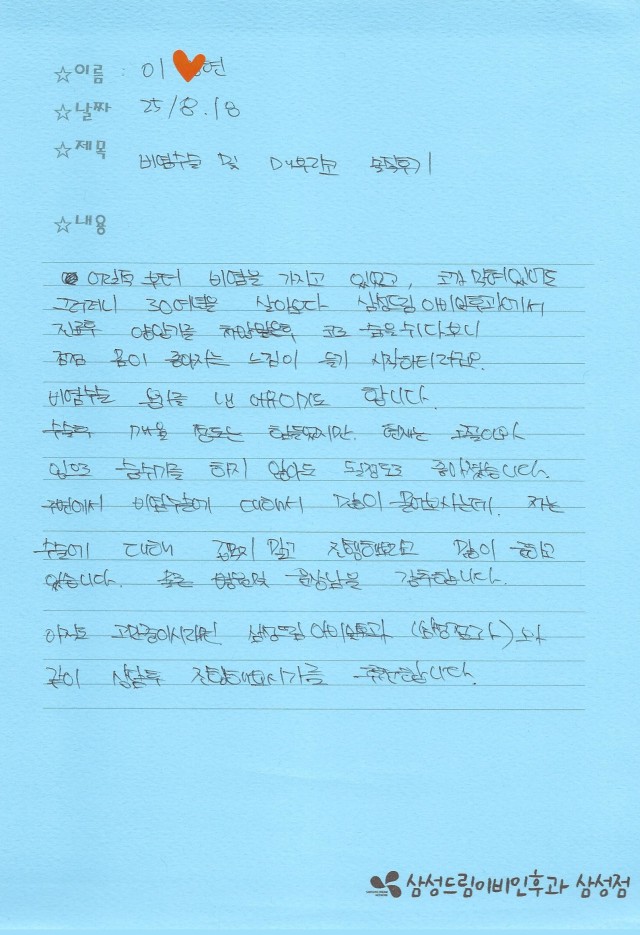 ☆이름 : 이 현
☆날짜 25/8.18
☆제목 비염수술 및
☆내용
어릴적 부터 비염을 가지고 있었고, 코가 막혀있어도
그러려니 30여년을 살아오다 삼성드림이비인후과에서
진료후 양압기를 코로 숨을 쉬다보니
점점 몸이 좋아지는 느낌이 들기 시작하더라구요.
비염수술 용기를 낸 이유이기도 합니다.
수술후 1개월 정도는 힘들었지만, 현재는 코골이와
입으로 숨쉬기를 하지 않아도 될정도로 좋아졌습니다.
주변에서 비염수술에 대해서 많이 물어보시는데, 저는
수술에 대해 겁먹지 말고 진행해보라고 많이 하고
있습니다. 좋은 병원및 원장님을 강추합니다.
아직도 고민중이시라면 삼성드림이비인후과 (삼성점)와
같이 상담후 진행해보시기를 추천합니다.
삼성드림이비인후과 삼성점